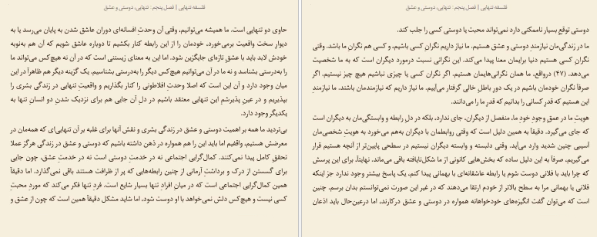 فلسفه تنهایی | فصل پنجم. تنهایی، دوستی و عشق
دوستی توقع بسیار ناممکنی دارد نمی‌تواند محبت یا دوستی کسی را جلب کند.
ما در زندگی‌مان نیازمند دوستی و عشق هستیم. ما نیاز داریم نگران کسی باشیم، و کسی هم نگران ما باشد. وقتی
نگران کسی هستیم دنیا برایمان معنا پیدا می‌کند. این نگرانی نسبت درمورد دیگران است که به ما شخصیت
می‌دهد. (۴۷) درواقع، ما همان نگرانی‌هایمان هستیم. اگر نگران کسی یا چیزی نباشیم هیچ چیز نیستیم. اگر
صرفاً نگران خودمان باشیم در یک دور باطل خالی گرفتار می‌آییم. ما نیاز داریم که نیازمندمان باشند. ما نیازمندِ
این هستیم که قدرِ کسانی را بدانیم که قدرِ ما را می‌دانند.
هویت ما در عمقِ وجودِ خودِ ما، منفصل از دیگران، جای ندارد، بلکه در دل رابطه و وابستگی‌مان به دیگران است
که جای می‌گیرد. دقیقاً به همین دلیل است که وقتی روابطمان با دیگران به‌هم می‌خورد به هویتِ شخصی‌مان
آسیبی چنین شدید وارد می‌آید. وقتی دلبسته و وابسته دیگران نیستیم در سطحی پایین‌تر از آنچه هستیم قرار
می‌گیریم، صرفاً به این دلیل ساده که بخش‌هایی کانونی از ما شکل‌نایافته باقی می‌ماند. نهایتاً، برای این پرسش
که چرا باید با فلانی دوست شویم یا رابطه عاشقانه‌ای با بهمانی پیدا کنیم، یک پاسخ بیشتر وجود ندارد جز اینکه
فلانی یا بهمانی مرا به سطح بالاتر از خودم ارتقا می‌دهند که در غیر این صورت نمی‌توانستم بدان برسم. چنین
است که می‌توان گفت انگیزه‌های خودخواهانه همواره در دوستی و عشق درکارند، اما درعین‌حال باید اذعان
فلسفه تنهایی | فصل پنجم. تنهایی، دوستی و عشق
حاوی دو تنهایی است. ما همیشه می‌توانیم، وقتی آن وحدت افسانه‌ای دوران عاشق شدن به پایان می‌رسد یا به
دیوار سخت واقعیت برمی‌خورد، خودمان را از این رابطه کنار بکشیم تا دوباره عاشق شویم که آن هم به‌نوبه
خودش لابد باید با عشق تازه‌ای جایگزین شود. اما این به معنای زیستنی است که در آن نه هیچ‌کس می‌تواند ما
را به‌درستی بشناسد و نه ما در آن می‌توانیم هیچ‌کس دیگر را به‌درستی بشناسیم. یک گزینه دیگر هم ظاهراً در این
میان وجود دارد و آن این است که اصلاً وحدت افلاطونی را کنار بگذاریم و واقعیتِ تنهایی در زندگی بشری را
بپذیریم و در عین پذیرشِ این تنهایی معتقد باشیم در دل آن جایی هم برای نزدیک شدنِ دو انسان تنها به
یکدیگر وجود دارد.
بی‌تردید ما همه بر اهمیت دوستی و عشق در زندگی بشری و نقش آنها برای غلبه بر آن تنهایی‌ای که همه‌مان در
معرضش هستیم، واقفیم اما باید این را هم همواره در ذهن داشته باشیم که دوستی و عشق در زندگی هرگز عملاً
تحقق کامل پیدا نمی‌کنند. کمال‌گرایی اجتماعی نه در خدمتِ دوستی است نه در خدمتِ عشق، چون جایی
برای گسستن از درک و برداشتِ آرمانی از چنین رابطه‌هایی که پر از ظرافت هستند باقی نمی‌گذارد. اما دقیقاً
همین کمال‌گرایی اجتماعی است که در میان افراد تنها بسیار شایع است. فردِ تنها فکر می‌کند که موردِ محبتِ
کسی نیست و هیچ‌کس دلش نمی‌خواهد با او دوست شود، اما شاید مشکل دقیقاً همین است که چون از عشق و